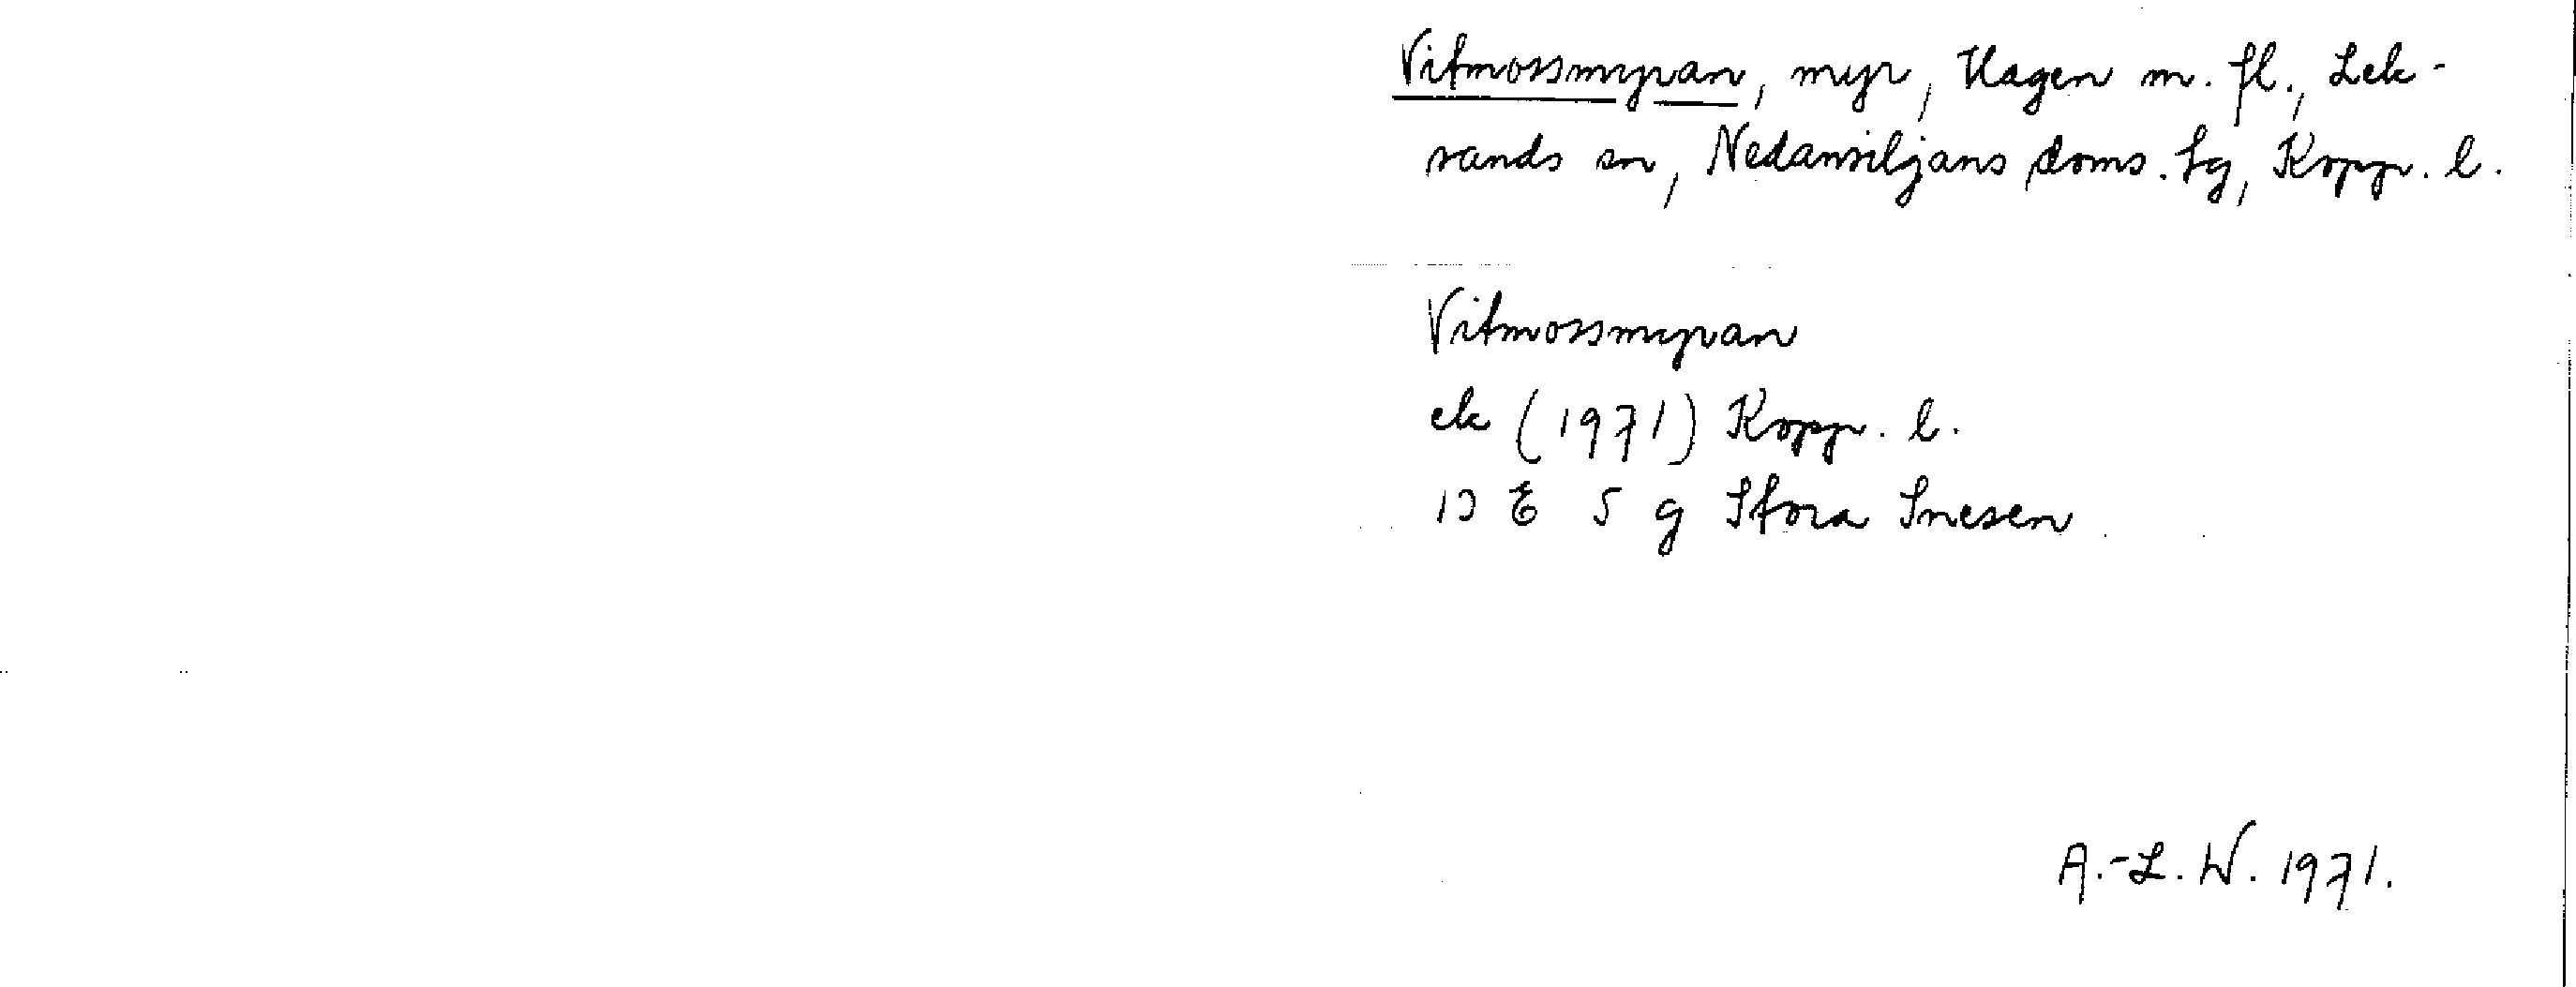 Vitmossmyran, myr, Hagen m. fl., Lek-
sands sn, Nedansiljans doms.tg, Kopp. l.
Vitmossmyran
ek (1971) Kopp. l.
13 E 5 g Stora Snesen
A.-L. W. 1971.